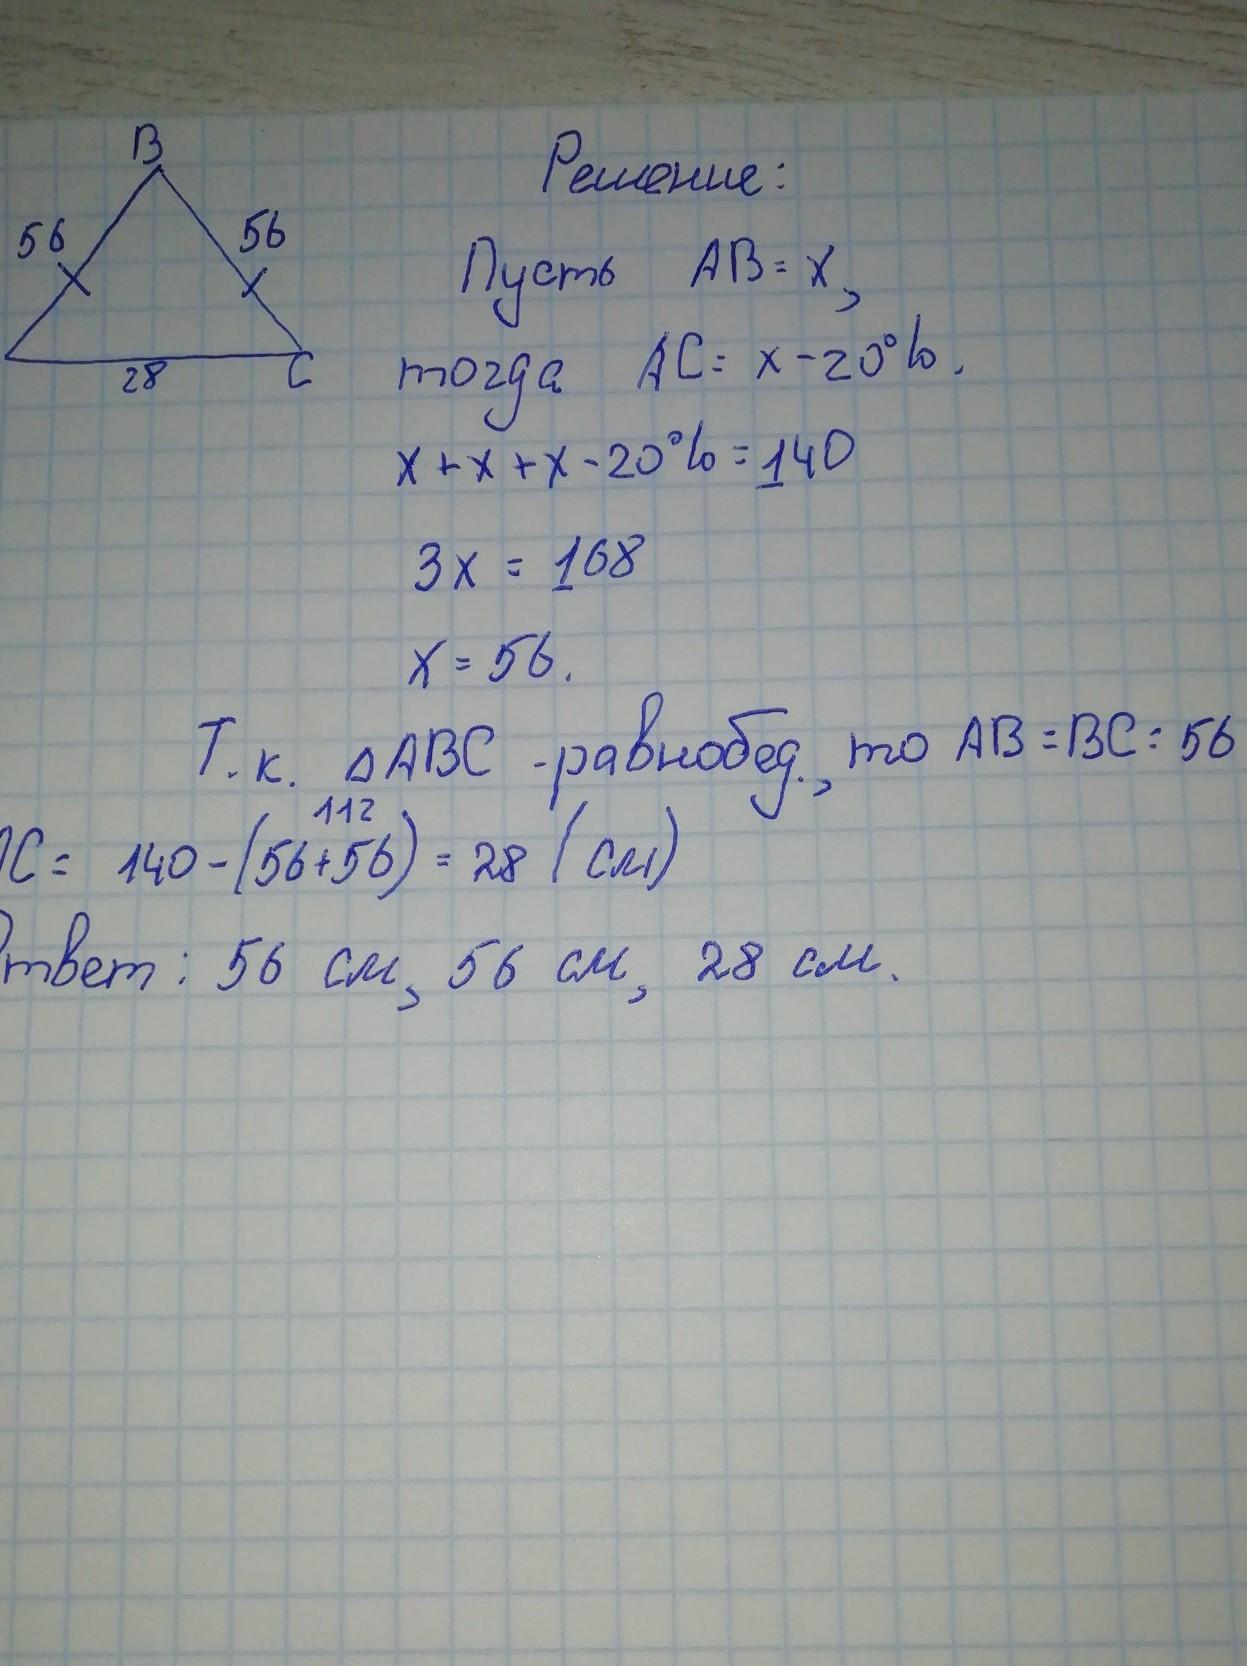 B
56 56
28 C
Решение:
Пусть AB = x,
тогда AC = x - 20%.
x + x + x - 20% = 140
3x = 168
x = 56.
Т.к. △ABC - равнобед., то AB = BC = 56
112
AC = 140 - (56+56) = 28 (см)
Ответ: 56 см, 56 см, 28 см.